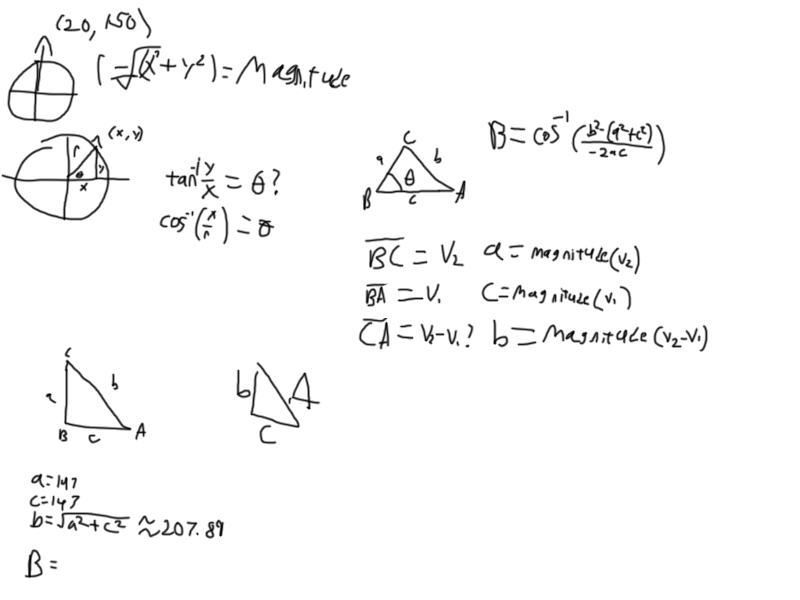 (20, 150)
r = √(x² + y²) = Magnitude
(x, y)
r
θ
y
x
tan⁻¹ y/x = θ?
cos⁻¹(x/r) = θ
C
a
b
θ
B
c
A
B = cos⁻¹((b²-(a²+c²))/(-2ac))
BC = V₂ a = magnitude(v₂)
BA = V₁ C = magnitude(v₁)
CA = V₂-V₁? b = Magnitude(v₂-v₁)
C
a
b
B
c
A
b
A
C
a=147
c=147
b=√a²+c² ≈ 207.89
B =